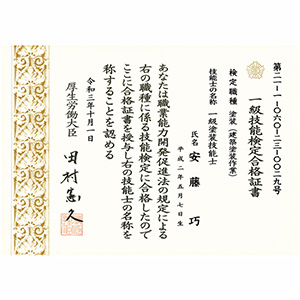 第二一-一-〇六〇-一三-〇〇二九号
一級技能検定合格証書
検定職種 塗装(建築塗装作業)
技能士の名称 一級塗装技能士
氏名 安藤 巧
平成二年五月七日生
あなたは職業能力開発促進法の規定による
右の職種に係る技能検定に合格したので
ここに合格証書を授与し右の技能士の名称を
称することを認める
令和三年十月一日
厚生労働大臣 田村憲久